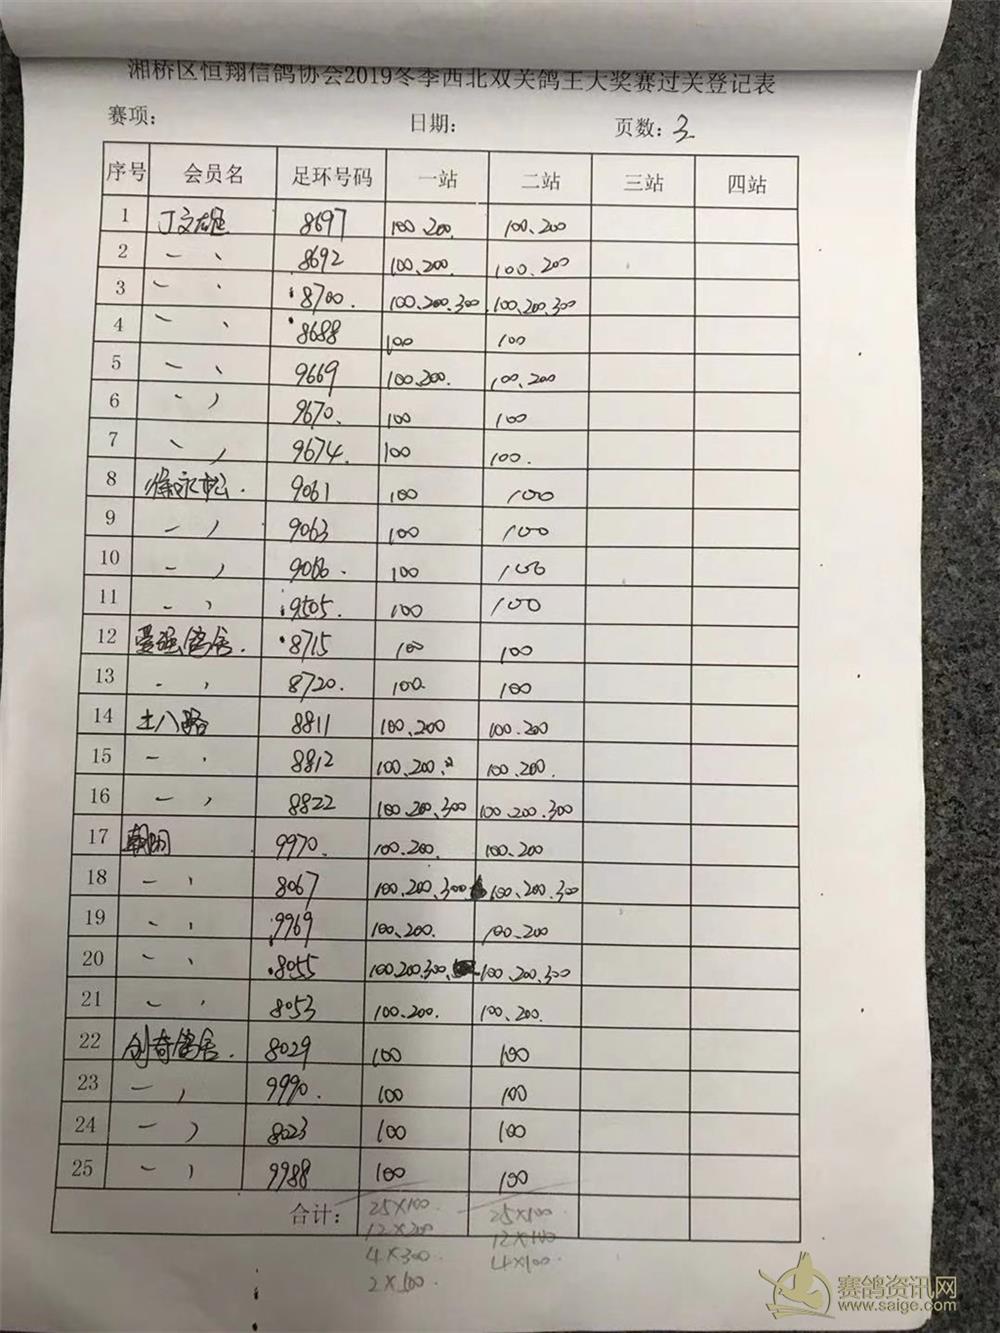 湘桥区恒翔信鸽协会2019冬季西北双关鸽王大奖赛过关登记表
赛项: 日期: 页数: 3
序号 会员名 足环号码 一站 二站 三站 四站
1 丁文雄 8697 100、200. 100、200
2 一 、 8692 100、200. 100、200
3 一 、 8700. 100、200、300 100、200、300
4 一 、 8688 100 100
5 一 、 9669 100、200. 100、200
6 一 、 9670. 100 100
7 一 、 9674. 100 100.
8 徐永松. 9061 100 100
9 一 、 9063 100 100
10 一 、 9066. 100 100
11 一 、 9505. 100 100
12 爱强鸽舍. 8715 100 100
13 一 、 8720. 100. 100
14 土八路 8811 100、200 100、200
15 一 、 8812 100、200、 100、200.
16 一 、 8822 100、200、300 100、200、300
17 朝阳 9970. 100、200. 100、200
18 一 、 8067 100、200、300. 100、200、300
19 一 、 9969 100、200. 100、200
20 一 、 8055 100、200、300、 100、200、300
21 一 、 8053 100、200. 100、200.
22 创奇鸽舍. 8029 100 100
23 一 、 9990. 100 100
24 一 、 8023 100 100
25 一 、 9988 100 100
合计: 25×100. 25×100.
12×200 12×100
4×300. 4×100.
2×500.
赛鸽资讯网
www.saige.com